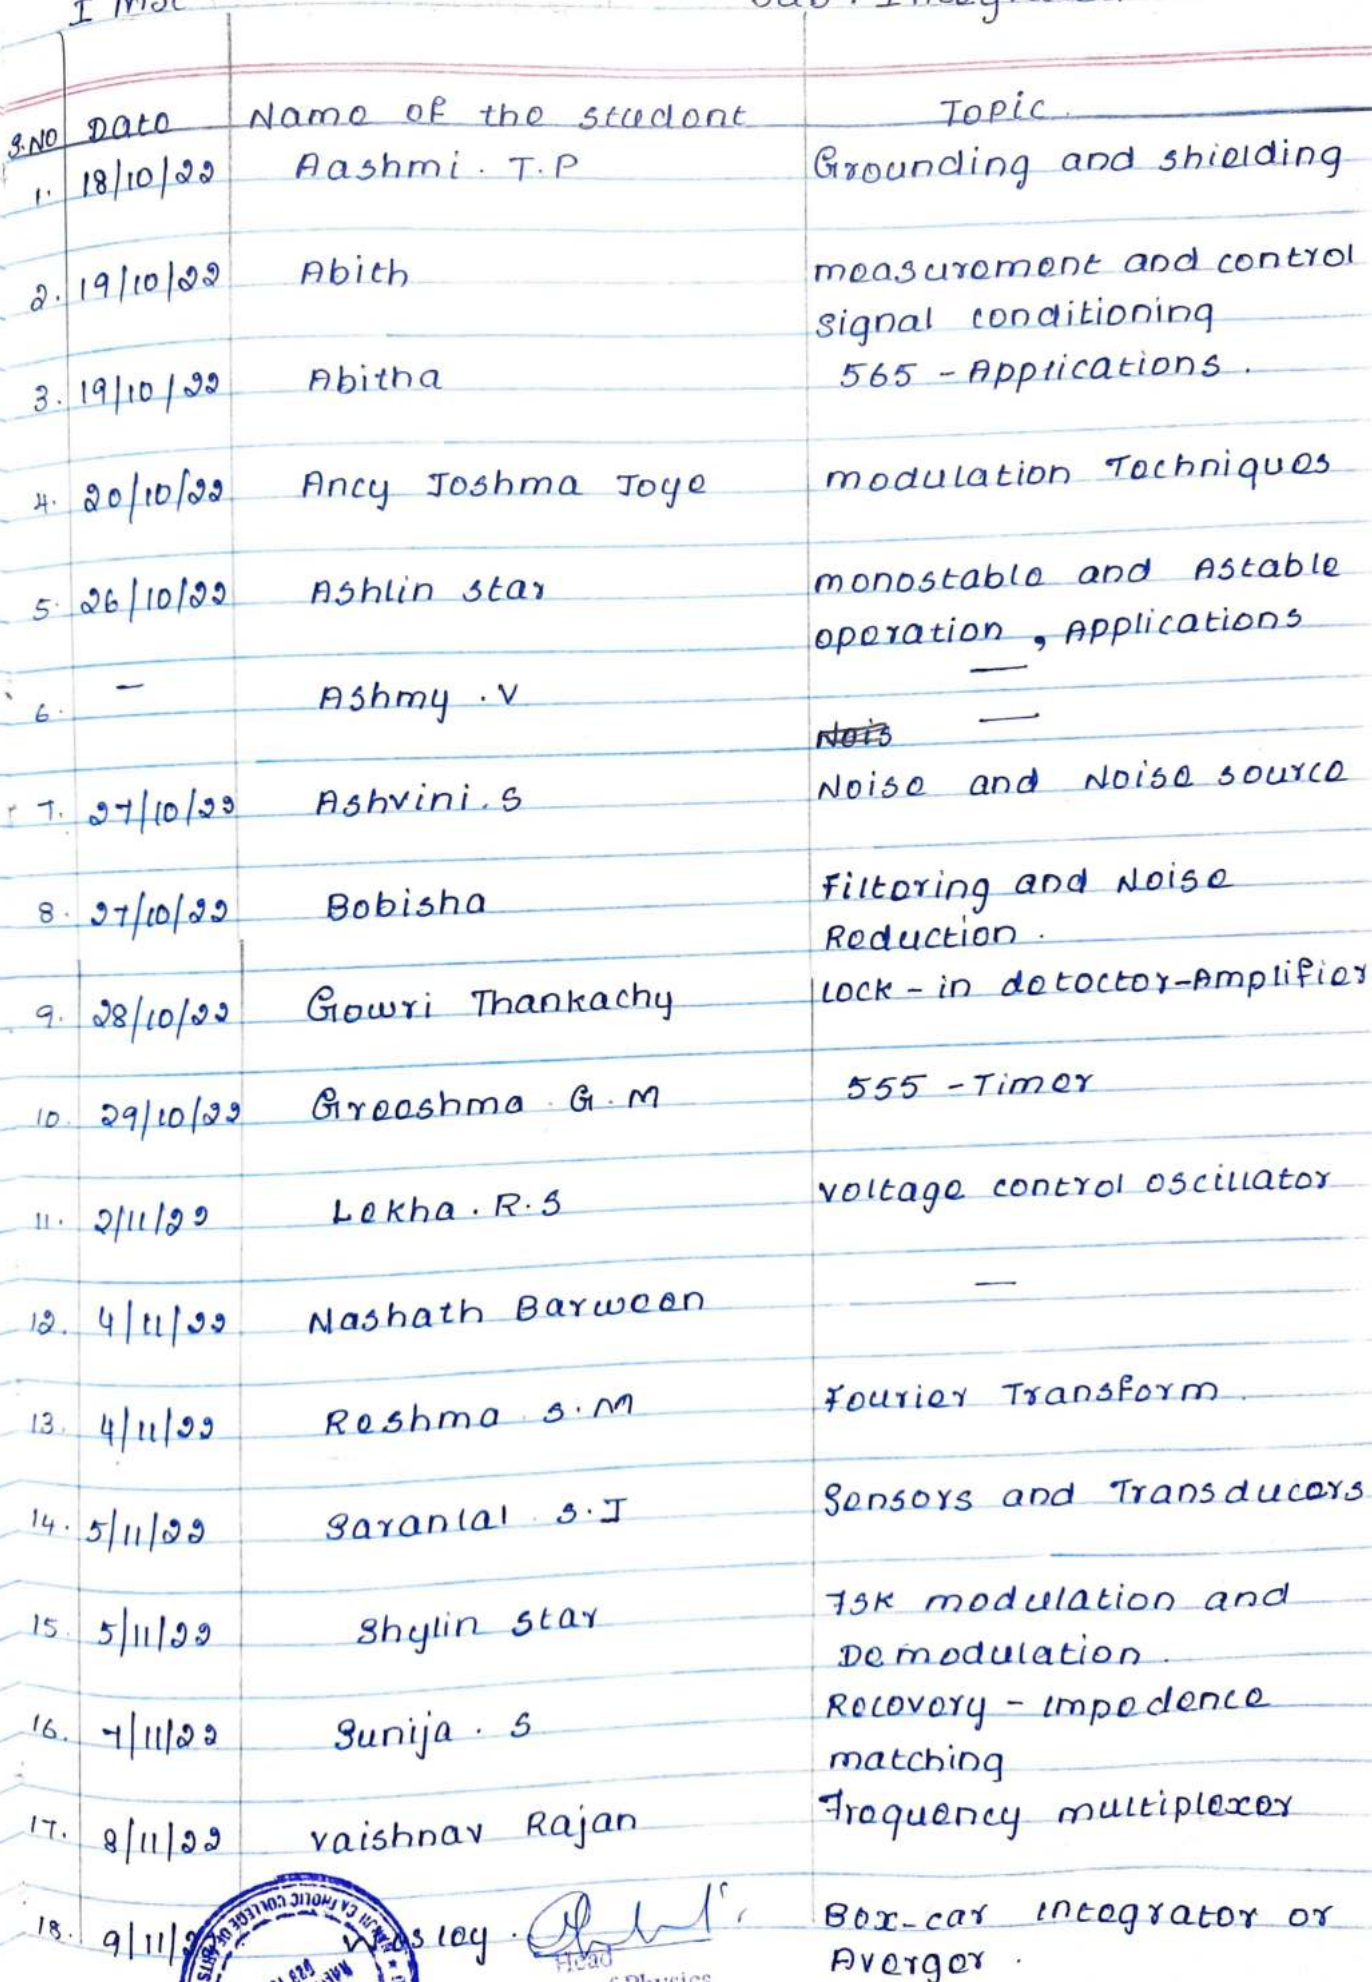 I MSc
S.NO Date Name of the student Topic.
1. 18/10/22 Aashmi. T.P Grounding and shielding
2. 19/10/22 Abith measurement and control
signal conditioning
3. 19/10/22 Abitha 565 - Applications.
4. 20/10/22 Ancy Joshma Joye modulation Techniques
5. 26/10/22 Ashlin star monostable and Astable
operation, Applications
6. - Ashmy. V —
Nois —
7. 27/10/22 Ashvini. S Noise and Noise source
8. 27/10/22 Bobisha Filtering and Noise
Reduction.
9. 28/10/22 Gowri Thankachy Lock-in detector-Amplifier
10. 29/10/22 Greeshma. G. M 555 - Timer
11. 2/11/22 Lekha. R. S voltage control oscillator
12. 4/11/22 Nashath Barween —
13. 4/11/22 Reshma S.M Fourier Transform.
14. 5/11/22 Saranlal S.J Sensors and Transducers
15. 5/11/22 Shylin star FSK modulation and
Demodulation.
16. 7/11/22 Sunija. S Recovery - impedence
matching
17. 8/11/22 vaishnav Rajan Frequency multiplexer
18. 9/11/ Wesley. Box-car integrator or
Head
Averger.
CATHOLIC COLLEGE OF ARTS
Physics